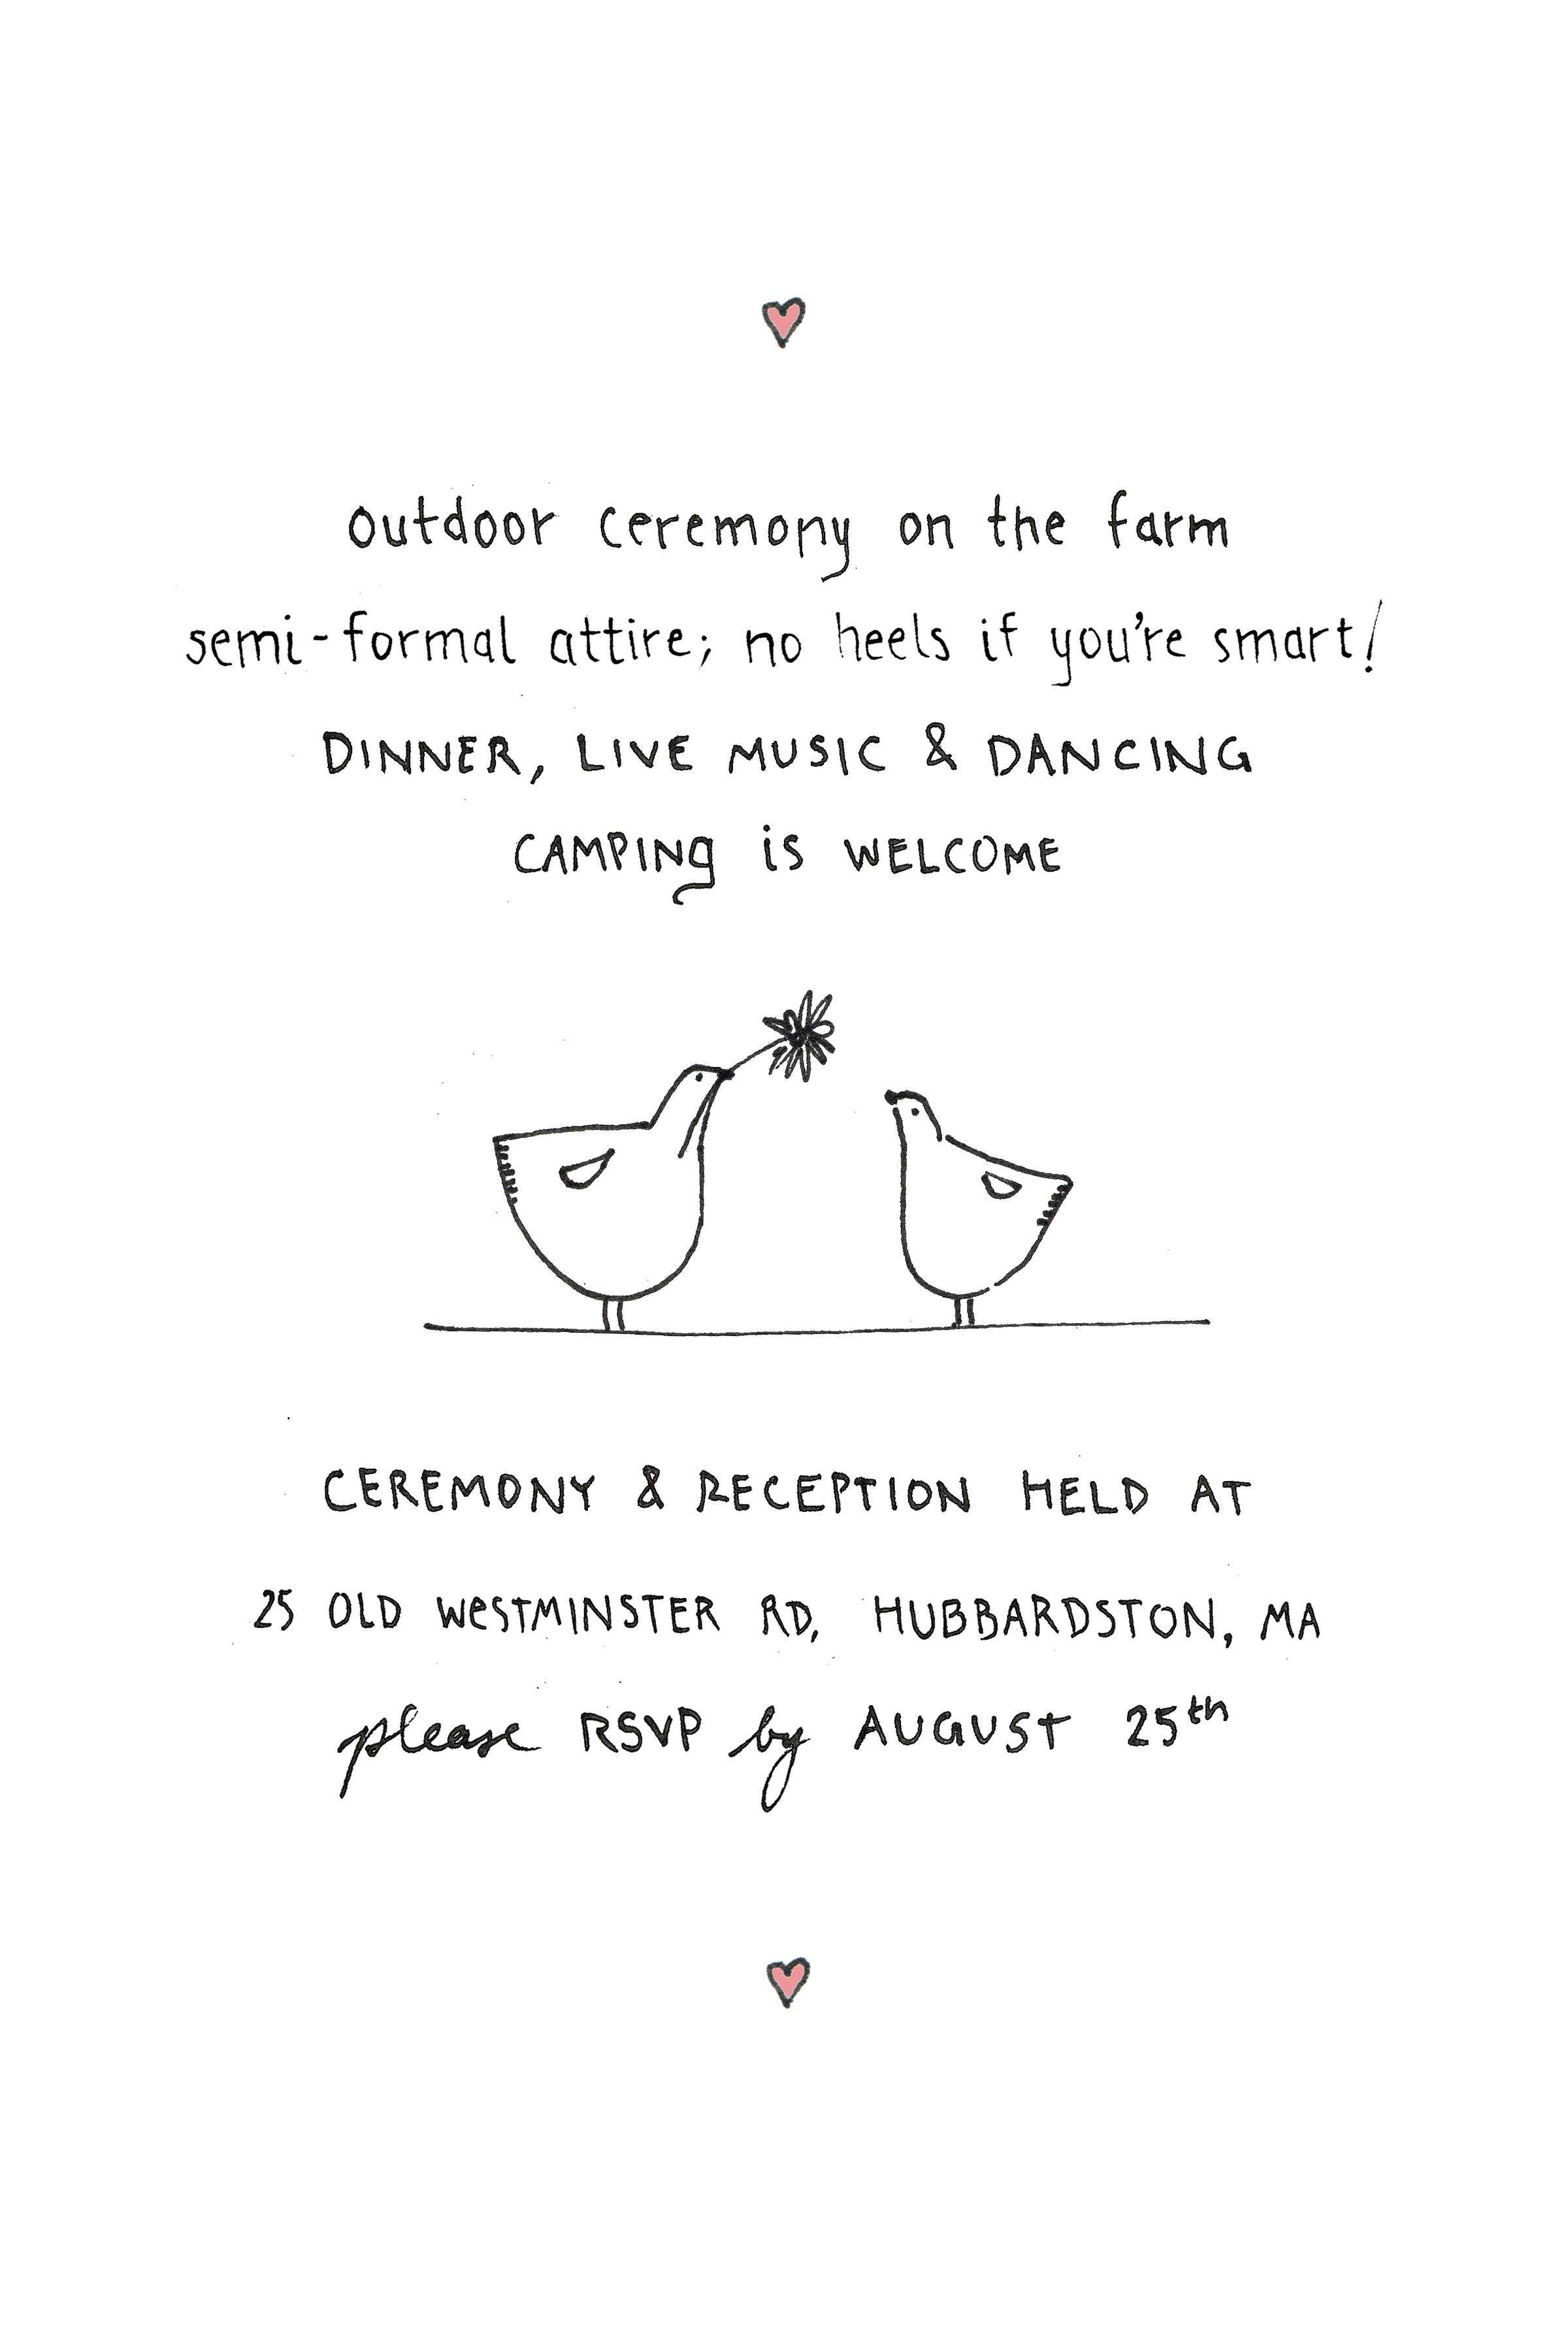 outdoor ceremony on the farm
semi-formal attire; no heels if you're smart!
DINNER, LIVE MUSIC & DANCING
CAMPINg is WELCOME
CEREMONY & RECEPTION HELD AT
25 OLD WeSTMINSTER RD, HUBBARDSTON, MA
please RSVP by AUGUST 25th